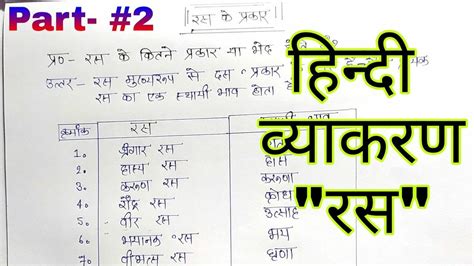 Part- #2
रस के प्रकार
प्र०- रस के कितने प्रकार या भेद
उत्तर- रस मुख्यरूप से दस प्रकार
रस का एक स्थायी भाव होता है
हिन्दी
व्याकरण
"रस"
क्रमांक रस
1. श्रृंगार रस
2. हास्य रस हास
3. करुणा रस करुणा
4. रौद्र रस क्रोध
5. वीर रस उत्साह
6. भयानक रस भय
7. वीभत्स रस घृणा